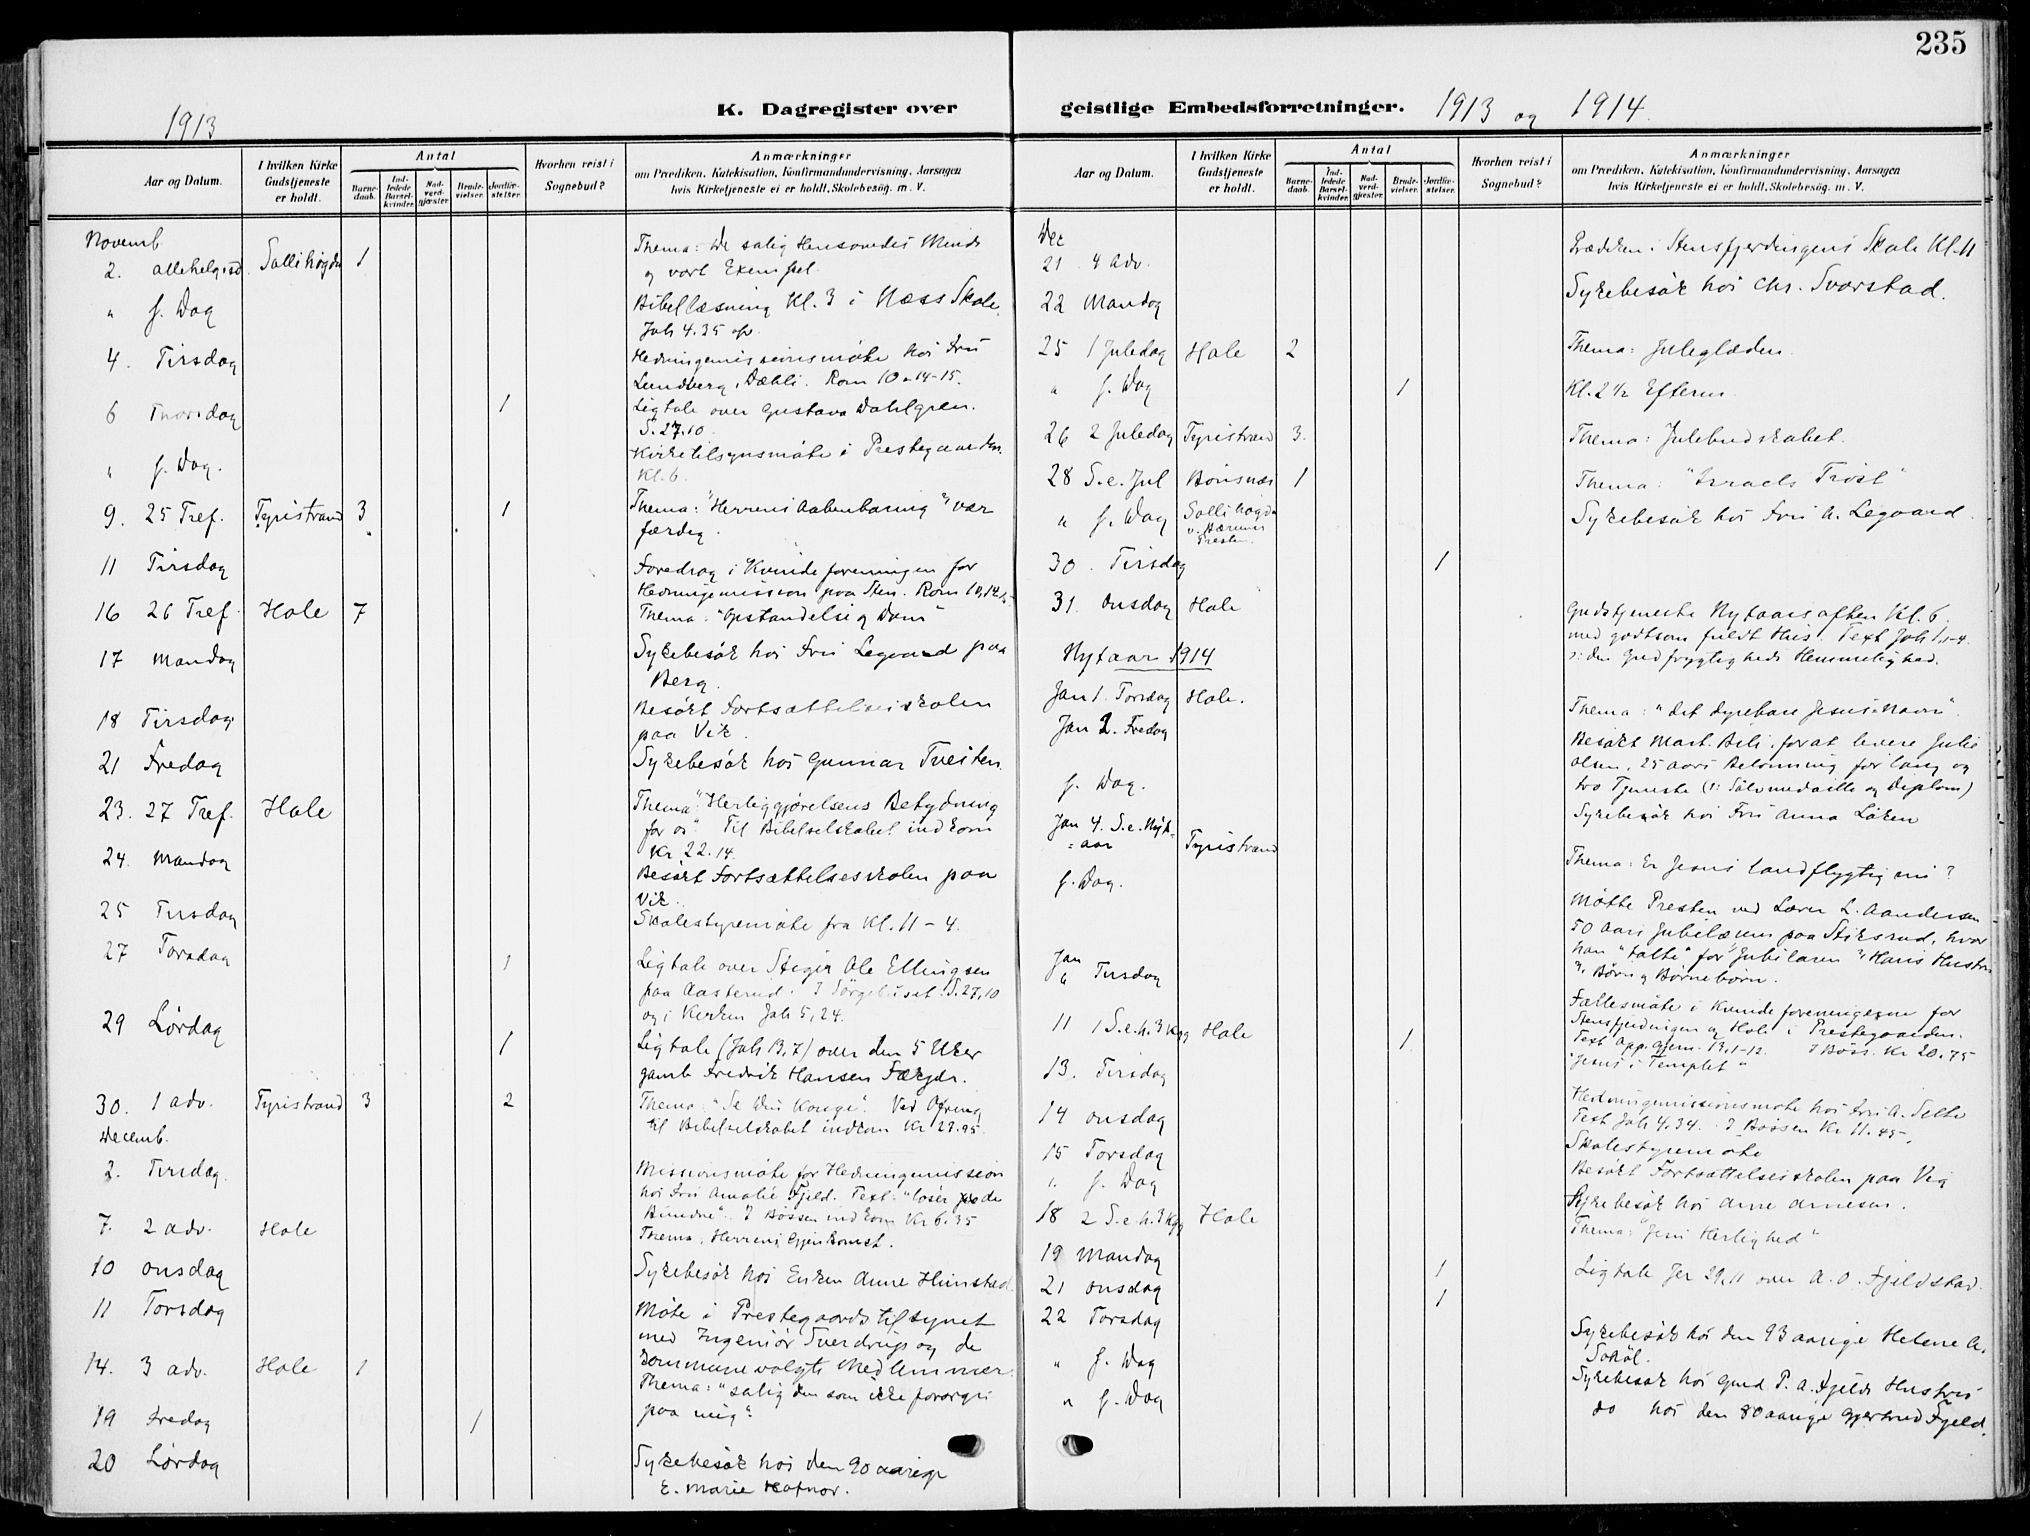 235
K. Dagregister over geistlige Embedsforretninger. 1913 og 1914.
1913
Aar og Datum.
I hvilken Kirke Gudstjeneste er holdt.
Antal
Barnedaab.
Indledede Barselkvinder.
Nadverdgjæster.
Brudevielser.
Jordfæstelser.
Hvorhen reist i Sognebud?
Anmærkninger
om Prædiken, Katekisation, Konfirmandundervisning, Aarsagen
hvis Kirketjeneste ei er holdt, Skolebesøg. m. V.
Novemb
2. Allehelgsd. Sollihøgda 1 Thema: De salig Hensovedes Minde
og vort Exempel.
" s. Dag Bibellæsning Kl. 3 i Næss Skole.
Joh 4.35
4. Tirsdag Hedningemissionsmøte hos Fru
Lundberg, Dæhli. Rom 10, 14-15.
6 Thorsdag 1 Ligtale over Gustava Dahlgren.
S. 27.10.
" s. Dag. Kirketilsynsmøte i Prestegaarden
Kl. 6.
9. 25 Tref. Tyristrand 3 1 Thema: "Herrens Aabenbaring" vær
færdig.
11 Tirsdag Foredrag i Kvindeforeningen for
Hedningemission paa Sten. Rom 10,14.15
16 26 Tref. Hole 7 Thema: "Opstandelse og Dom"
17 Mandag Sykebesøk hos Fru Legaard paa
Berg.
18 Tirsdag Besøkt Fortsættelsesskolen
paa Vik.
21 Fredag Sykebesøk hos Gunnar Tveiten.
23. 27 Tref. Hole Thema: "Herliggjørelsens Betydning
for os". Til Bibelselskabet indkom
Kr 22.14.
24. Mandag Besøkt Fortsættelsesskolen paa
Vik.
25 Tirsdag Skolestyremøte fra Kl. 11-4.
27 Torsdag 1 Ligtale over Ole Ellingsen
paa Aasterud. I Sørgehuset S. 27,10
og i Kirken Joh 5,24.
29 Lørdag 1 Ligtale (Joh 13,7) over den 5 Uker
gamle Fredrik Hansen
30. 1 adv. Tyristrand 3 2 Thema: "Se Din Konge". Ved Ofring
til Bibelselskabet indkom Kr 23.95.
Decemb.
2. Tirsdag. Missionsmøte for Hedningemission
hos Fru Amalie Fjeld. Text: "loser de
Bundne". I Bøssen indkom Kr 6.35
7. 2 adv. Hole Thema: Herrens Gjenkomst.
10 Onsdag Sykebesøk hos Enken Anne Hunstad.
11 Torsdag Møte i Prestegaardstilsynet
med Ingeniør Sverdrup og de
kommunevalgte Medlemmer.
14. 3 adv. Hole 1 Thema: "Salig den som ikke forarges
paa mig".
19 Fredag 1
20 Lørdag Sykebesøk hos den 90 aarige
E. Marie Hafnor.
Aar og Datum.
I hvilken Kirke Gudstjeneste er holdt.
Antal
Barnedaab.
Indledede Barselkvinder.
Nadverdgjæster.
Brudevielser.
Jordfæstelser.
Hvorhen reist i Sognebud?
Anmærkninger
om Prædiken, Katekisation, Konfirmandundervisning, Aarsagen
hvis Kirketjeneste ei er holdt, Skolebesøg. m. V.
Dec
21 4 Adv. Prædiken i Stensfjerdingens Skole Kl. 11
22 Mandag Sykebesøk hos Chr. Svarstad.
25 1 Juledag Hole 2 Thema: Juleglæden.
" s. Dag 1 Kl. 2 1/2 Efterm.
26 2 Juledag Tyristrand 3. Thema: Julebudskabet.
28 S. e. Jul Bønsnæs 1 Thema: "Israels Trøst"
" s. Dag Sollihøgda
v. Bærums
Presten. Sykebesøk hos Fru A. Legaard.
30. Tirsdag 1
31. Onsdag Hole Gudstjeneste Nytaarsaften Kl. 6.
med godtsom fuldt Hus. Text Joh 1,1-4.
: den Gudfrygtigheds Hemmelighed.
Nytaar 1914
Jan 1. Torsdag Hole. Thema: "det dyrebare Jesusnavn".
Jan 2. Fredag Besøkt Mart. Bili, for at levere Julie
Olsen, 25 aars Belønning for lang og
tro Tjeneste (Sølvmedaille og Diplom)
s. Dag. Sykebesøk hos Fru Anna Løken
Jan 4. S. e. Nyt-
=aar Tyristrand Thema: Er Jesus landflygtig nu?
s. Dag. Møtte Presten ved Lærer L. Aandersen
50 Aars Jubilæum paa Stiksrud, hvor
han "talte" for Jubilaren, Hans Hustru
Børn og Børnebørn.
Jan
6 Tirsdag Fællesmøte i Kvindeforeningerne for
Stensfjerdingen og Hole i Prestegaarden.
Text App. Gjern. 13,1-12. I Bøss. Kr 20.75
11 1 S. e. h. 3 Kgg Hole 1 "Jesus i Templet"
13. Tirsdag Hedningemissionsmøte hos Fru A. Selte
Text Joh 4.34. I Bøssen Kr 11.45.
14 Onsdag Skolestyremøte
15 Torsdag Besøkt Fortsættelsesskolen paa Vig
" s. Dag Sykebesøk hos Anne Arnesen.
18 2 S. e. h. 3 Kgg Hole Thema: "Jesu Herlighed"
19 Mandag 1 Ligtale Jer 29.11 over A. O. Fjeldstad.
21 Onsdag 1
22 Torsdag Sykebesøk hos den 93 aarige Helene A.
" s. Dag Sykebesøk hos Gmd. P. A. Fjelds Hustru
" s. Dag do hos den 80 aarige Gjertrud Fjeld.